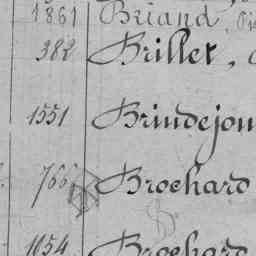 1861 Briand,
382 Brillet,
1551 Brindejon
766 Brochard
1054 Brochard